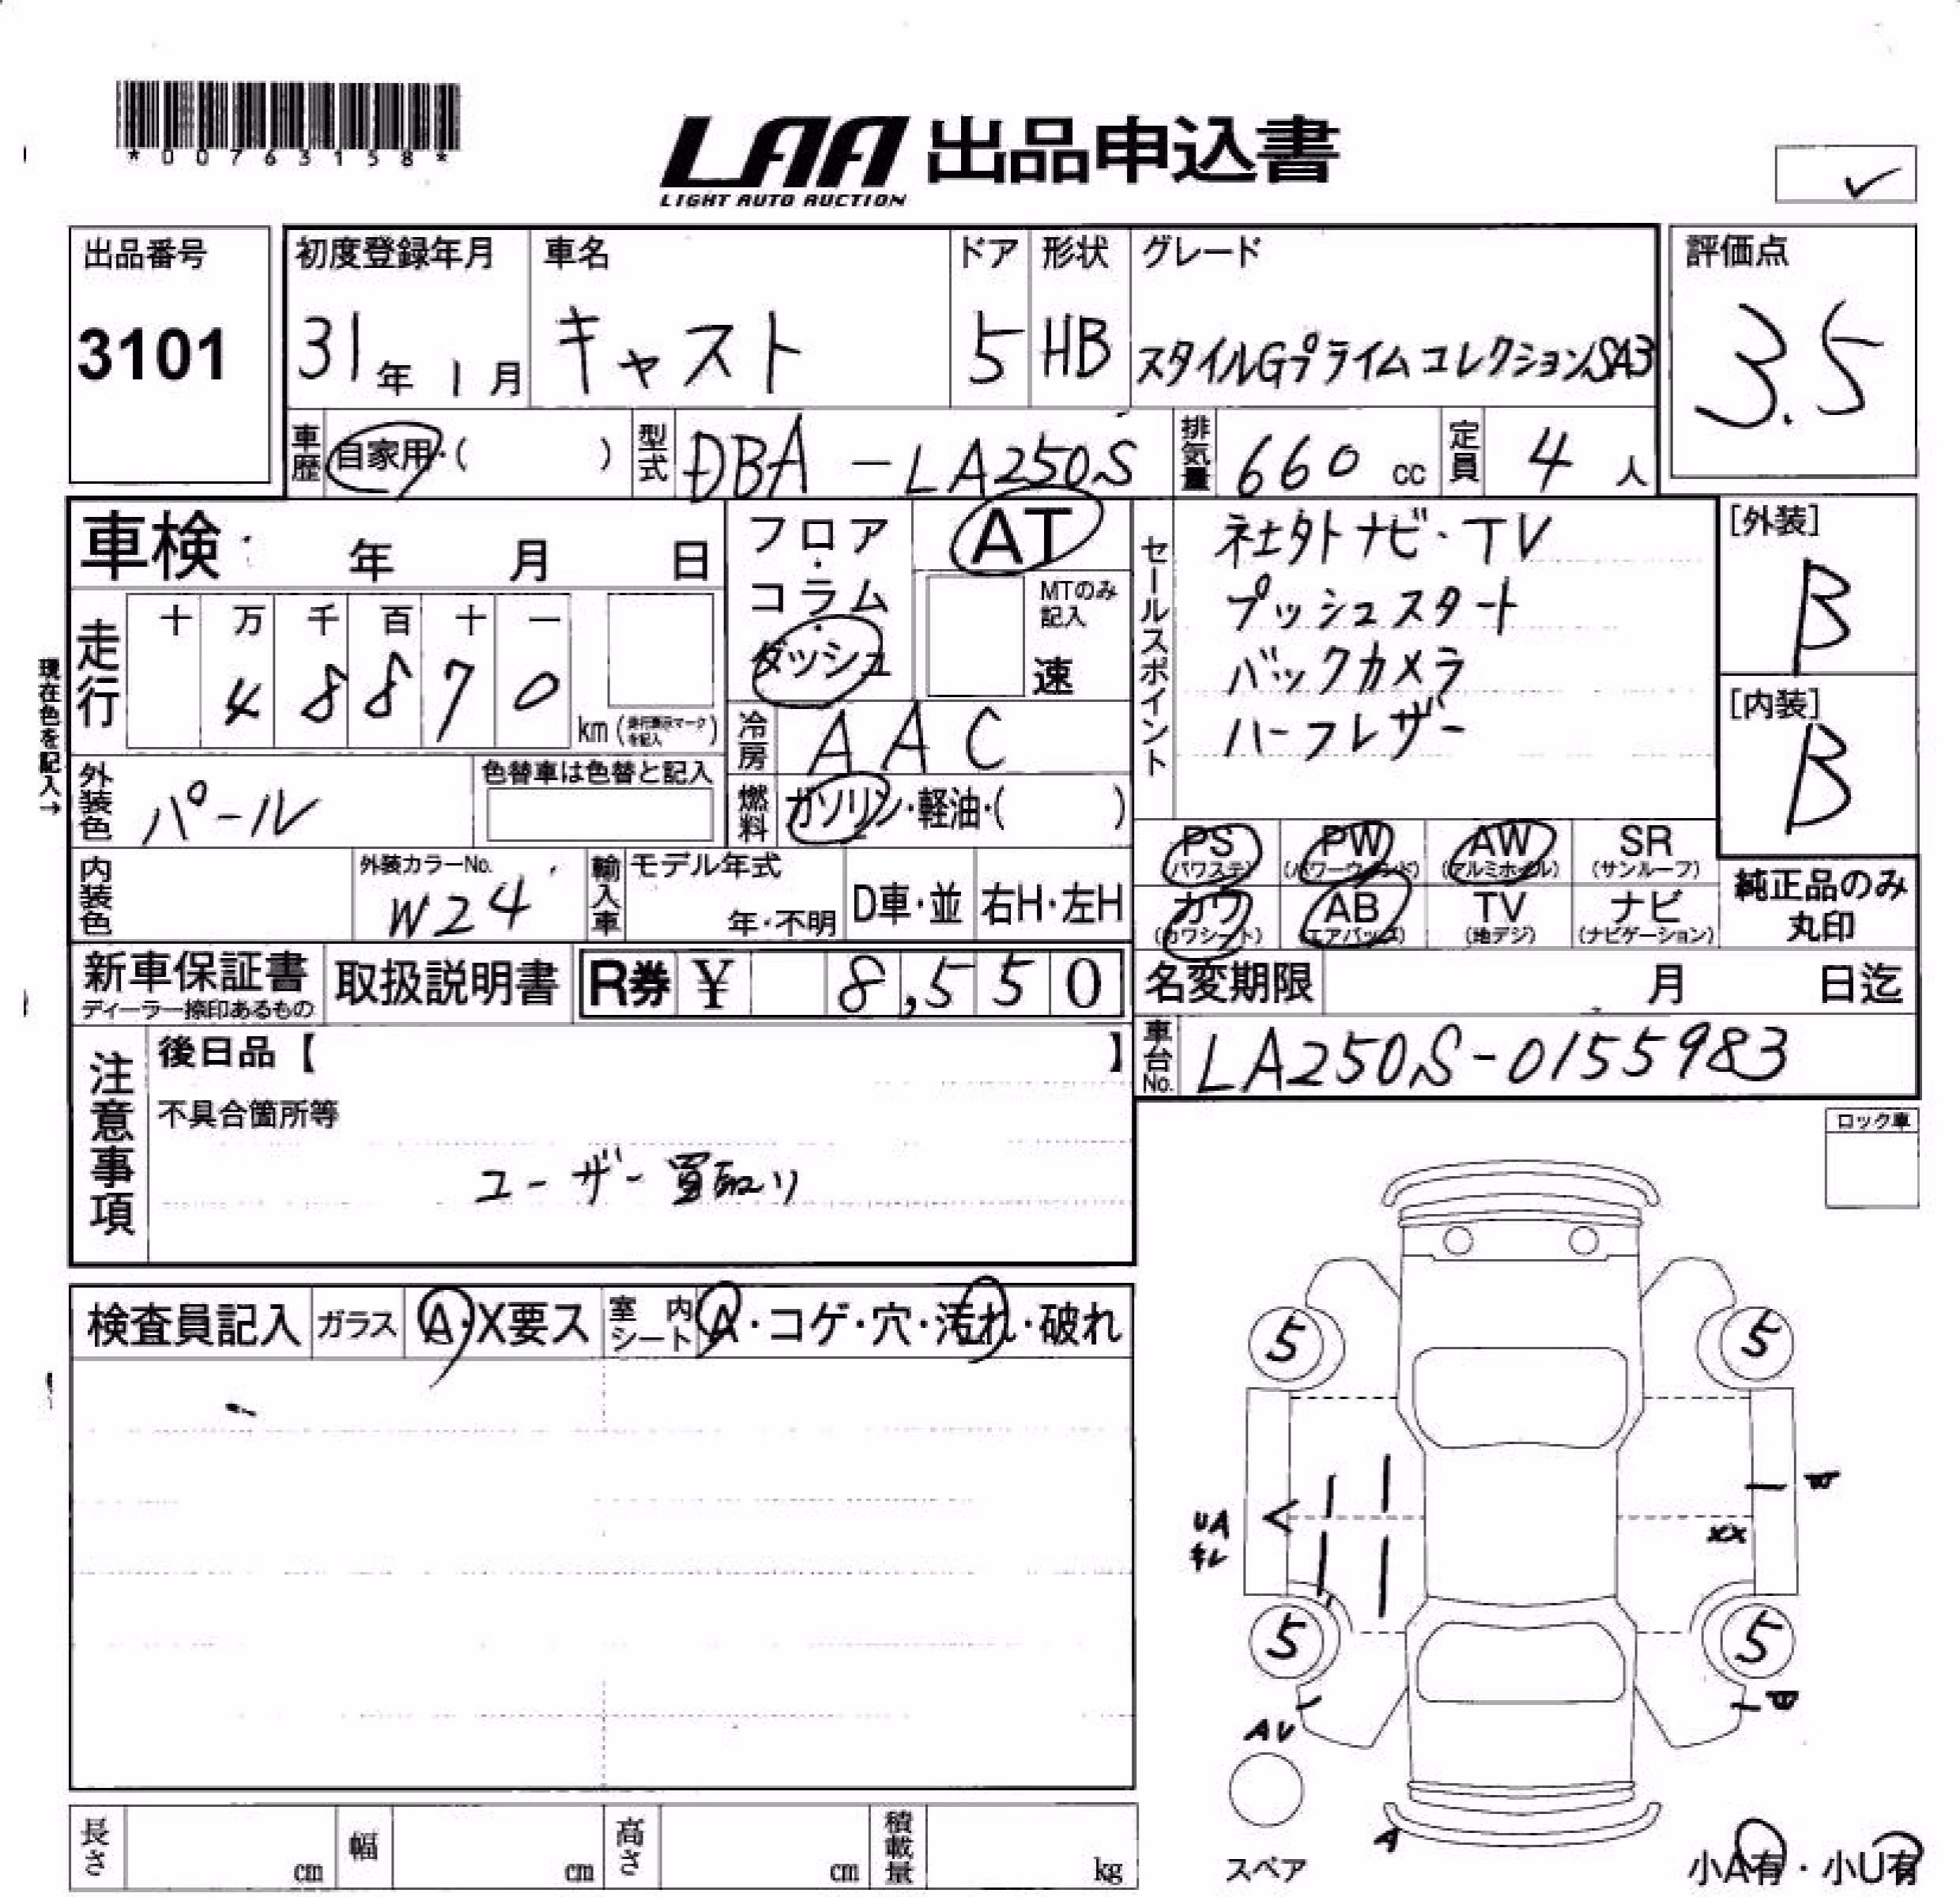 *00763158*
LAA 出品申込書
LIGHT AUTO AUCTION
✓
出品番号
3101
初度登録年月
31年 1月
車名
キャスト
ドア
5
形状
HB
グレード
スタイルGプライムコレクションSA3
評価点
3.5
車歴
自家用・( )
型式
DBA-LA250S
排気量
660 cc
定員
4 人
車検 年 月 日
フロア・コラム・ダッシュ
AT
MTのみ記入
速
セールスポイント
社外ナビ・TV
プッシュスタート
バックカメラ
ハーフレザー
[外装]
B
[内装]
B
現在色を記入→
走行
十 万 千 百 十 一
4 8 8 7 0
km (走行表示マークを記入)
冷房
AAC
外装色
パール
色替車は色替と記入
燃料
ガソリン・軽油・( )
PS (パワステ)
PW (パワーウィンド)
AW (アルミホイル)
SR (サンルーフ)
カワ (カワシート)
AB (エアバッグ)
TV (地デジ)
ナビ (ナビゲーション)
純正品のみ丸印
内装色
外装カラーNo.
W24
輸入車
モデル年式
年・不明
D車・並
右H・左H
新車保証書
ディーラー捺印あるもの
取扱説明書
R券 ¥ 8,550
名変期限 月 日迄
車台No.
LA250S-0155983
注意事項
後日品【 】
不具合箇所等
ユーザー買取り
ロック車
検査員記入
ガラス
A・X要ス
室内シート
A・コゲ・穴・汚れ・破れ
5 5
W
UA
キレ
XX
5 5
AU
W
A
スペア
小A有・小U有
長さ cm
幅 cm
高さ cm
積載量 kg